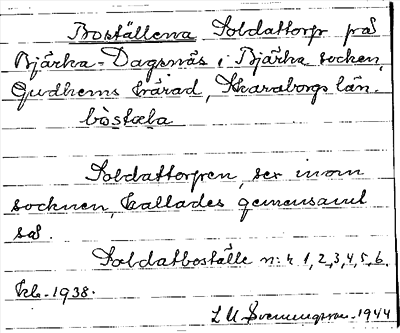 Boställena Soldattorp på
Bjärka-Dagsnäs i Bjärka socken,
Gudhems härad, Skaraborgs län.
bòstæla
Soldattorpen, sex inom
socknen, kallades gemensamt
så.
Soldatboställe n:r 1,2,3,4,5,6.
1938.
L M Svenungsson-1944